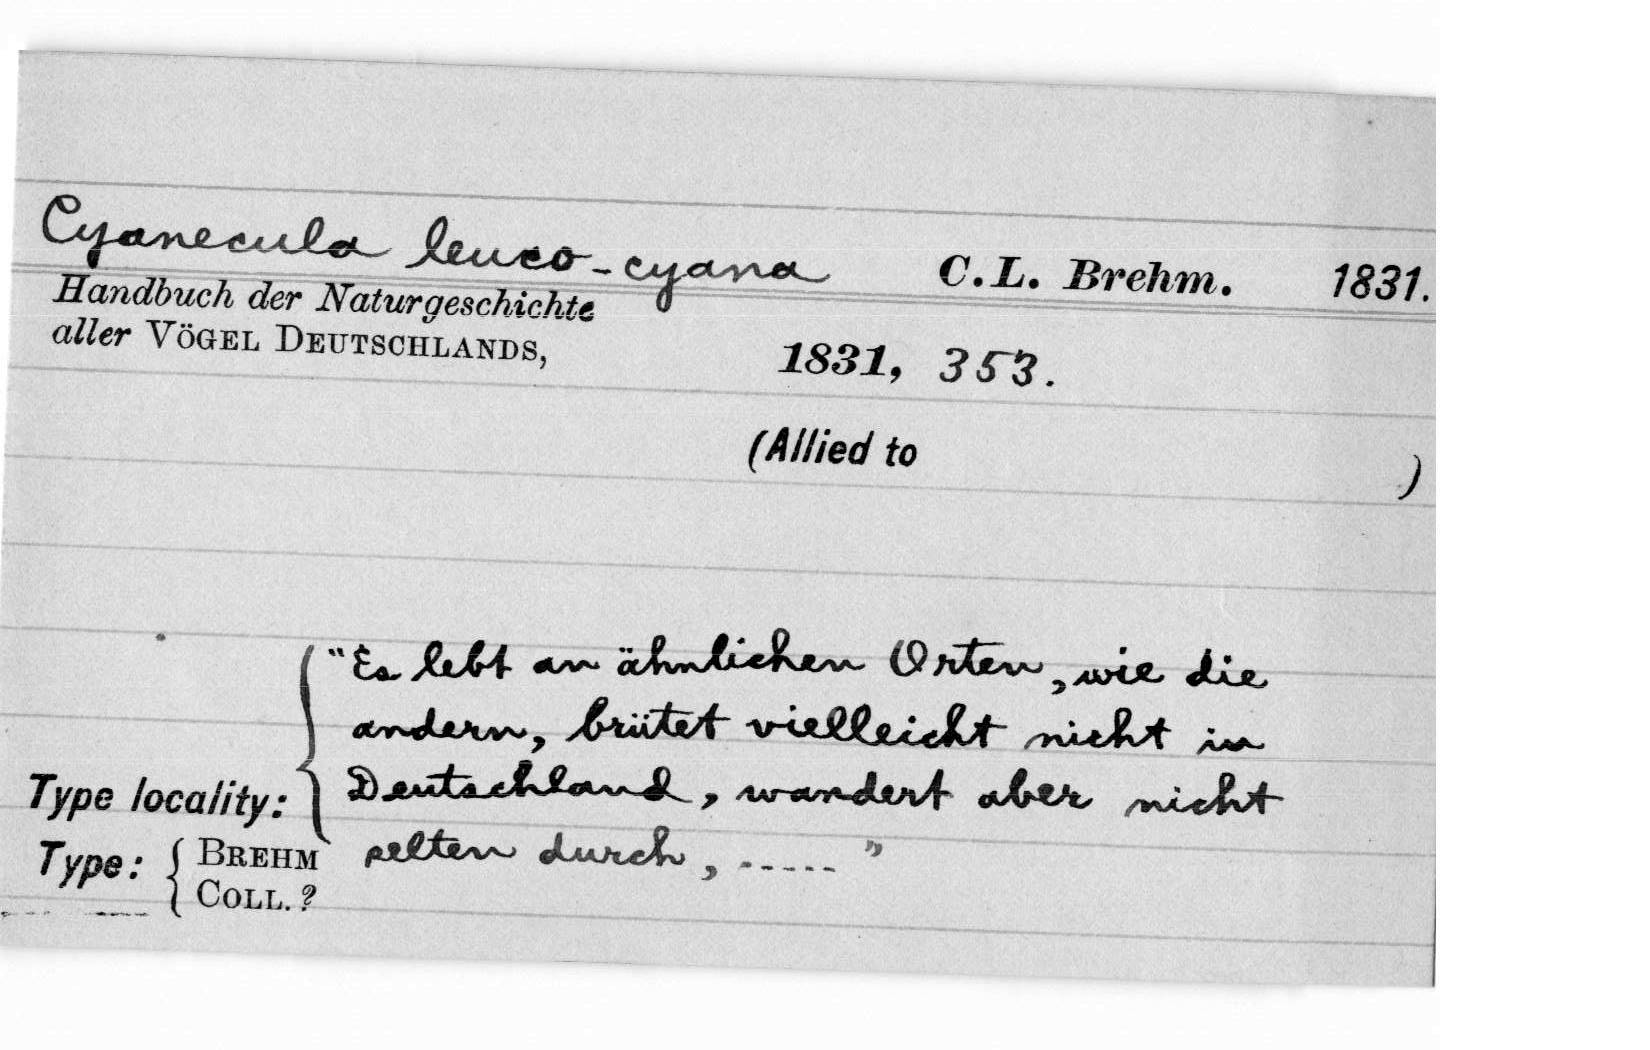 Cyanecula leuco-cyana C.L. Brehm. 1831.
Handbuch der Naturgeschichte
aller VÖGEL DEUTSCHLANDS, 1831, 353.
(Allied to )
"Es lebt an ähnlichen Orten, wie die
andern, brütet vielleicht nicht in
Type locality: Deutschland, wandert aber nicht
selten durch, -----"
Type: BREHM
COLL. ?